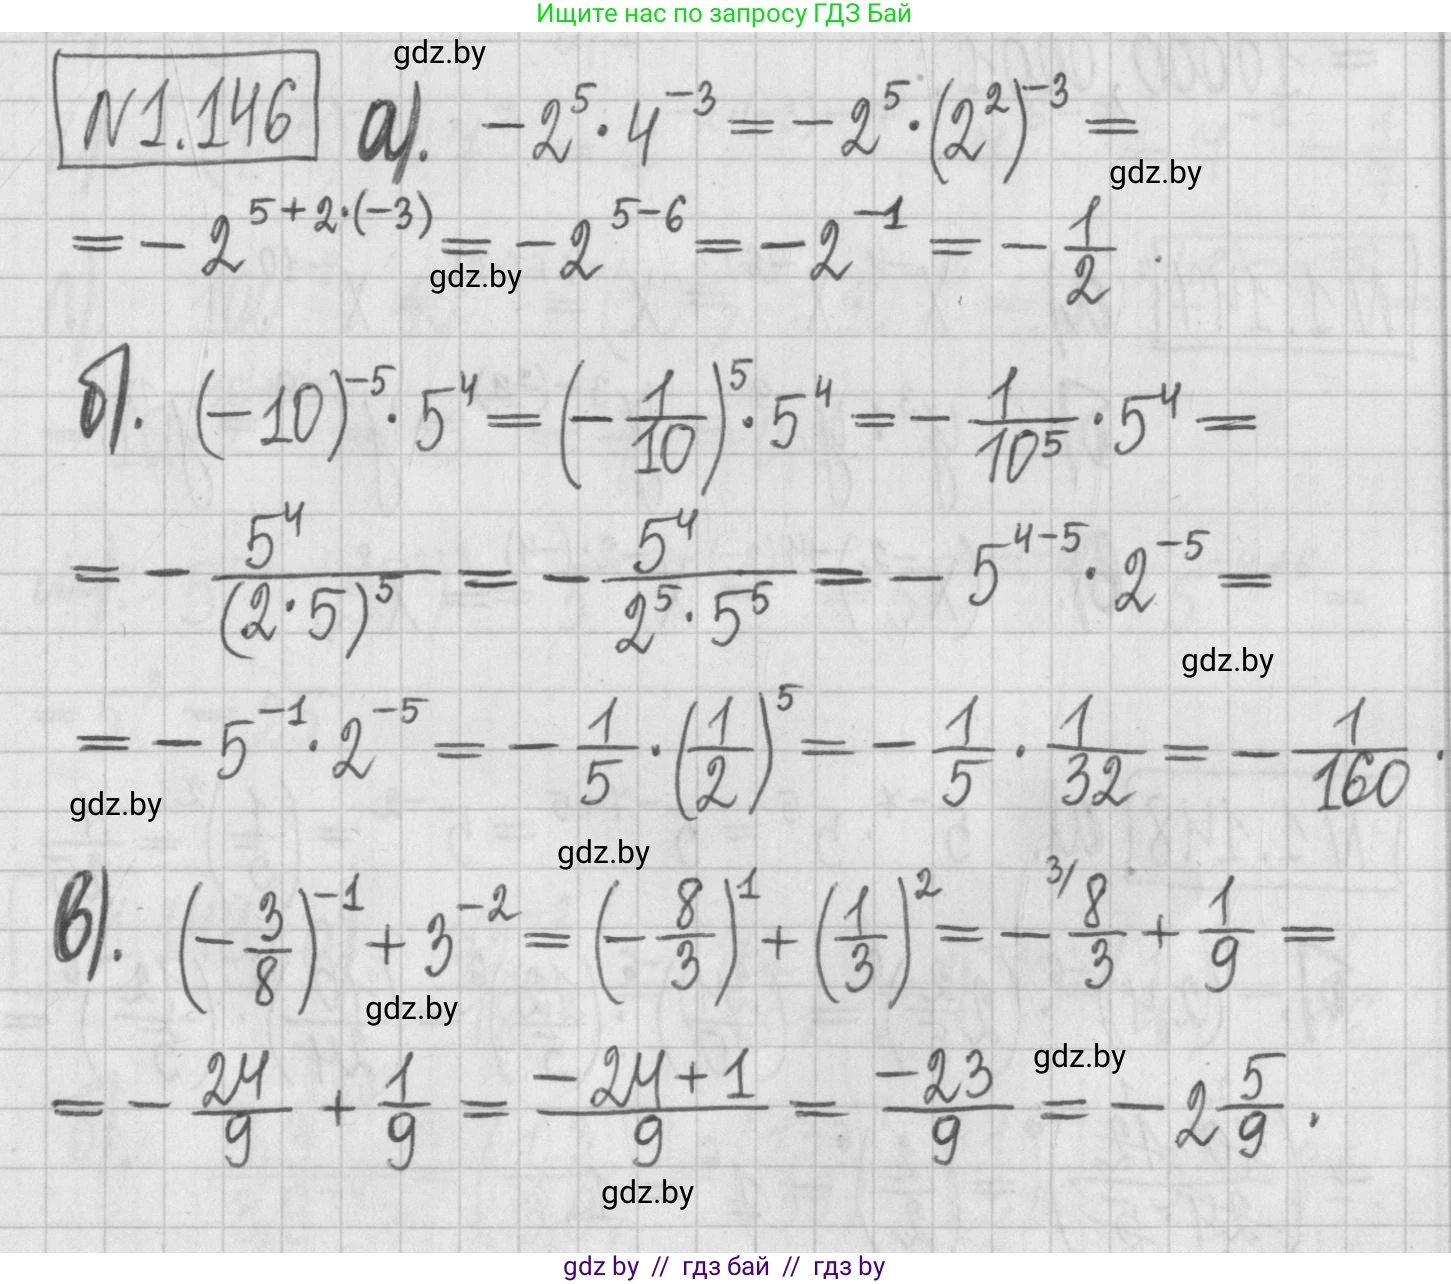 Ищите нас по запросу ГДЗ Бай
gdz.by
N1.146 а). -2^5·4^{-3}=-2^5·(2^2)^{-3}=
gdz.by
=-2^{5+2·(-3)}=-2^{5-6}=-2^{-1}=-\frac{1}{2}.
gdz.by
б). (-10)^{-5}·5^4=(-\frac{1}{10})^5·5^4=-\frac{1}{10^5}·5^4=
=-\frac{5^4}{(2·5)^5}=-\frac{5^4}{2^5·5^5}=-5^{4-5}·2^{-5}=
gdz.by
=-5^{-1}·2^{-5}=-\frac{1}{5}·(\frac{1}{2})^5=-\frac{1}{5}·\frac{1}{32}=-\frac{1}{160}.
gdz.by
gdz.by
в). (-\frac{3}{8})^{-1}+3^{-2}=(-\frac{8}{3})^1+(\frac{1}{3})^2=-^{3/}\frac{8}{3}+\frac{1}{9}=
gdz.by
gdz.by
=-\frac{24}{9}+\frac{1}{9}=\frac{-24+1}{9}=\frac{-23}{9}=-2\frac{5}{9}.
gdz.by
gdz by // гдз бай // гдз by